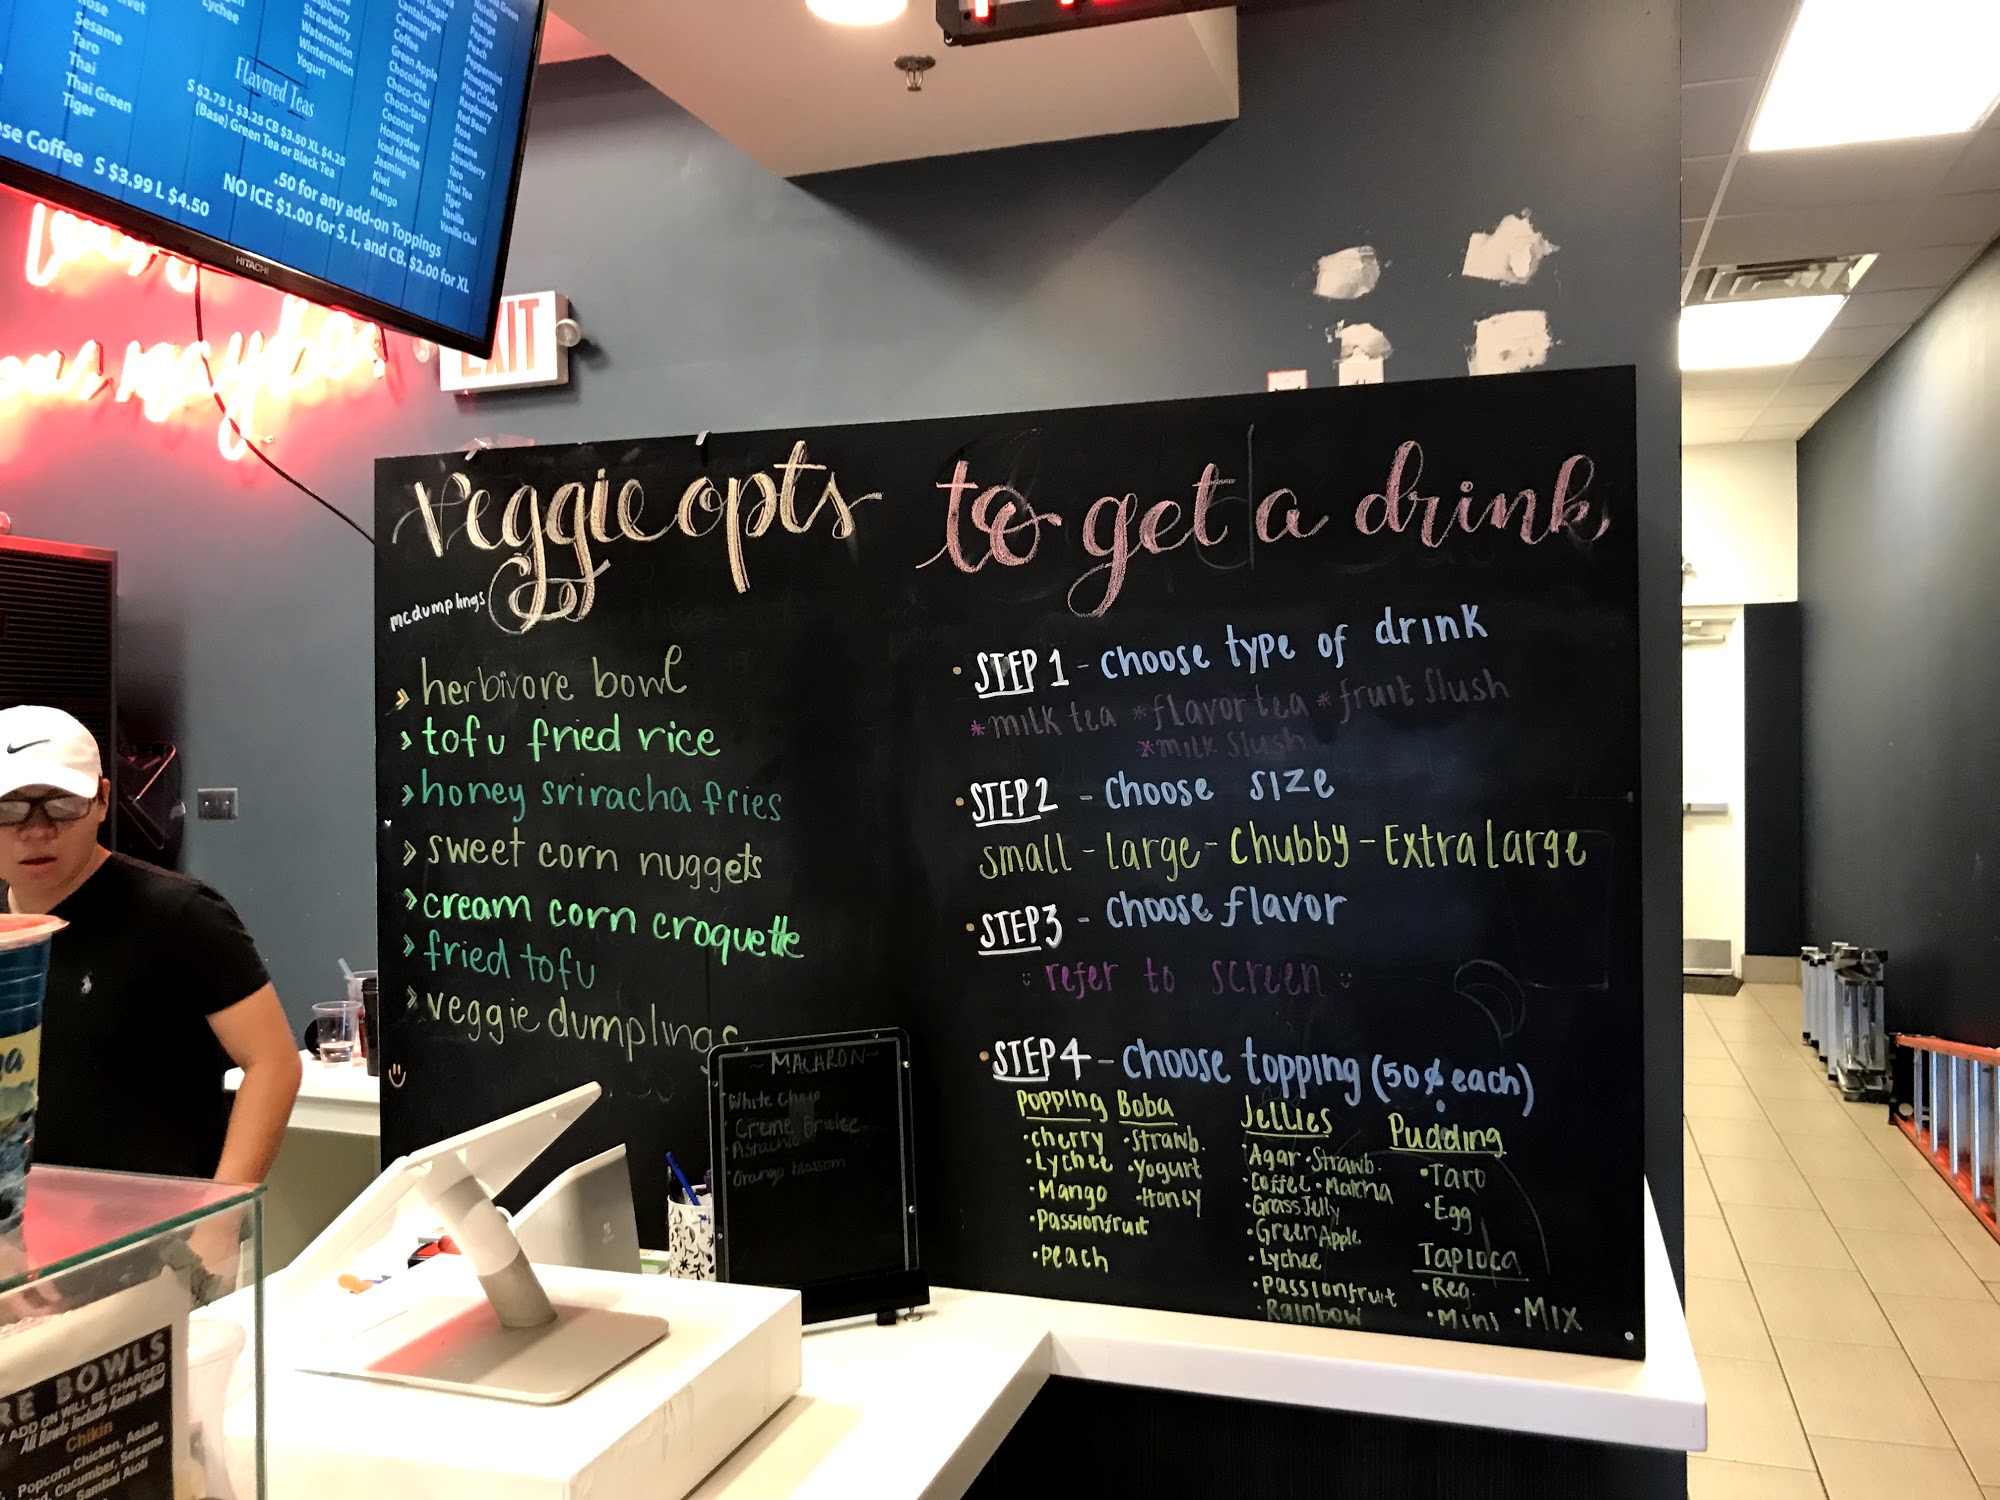 Rose
Sesame
Taro
Thai
Thai Green
Tiger
Lychee
Raspberry
Strawberry
Watermelon
Wintermelon
Yogurt
Flavored Teas
S $2.75 L $3.25 CB $3.50 XL $4.25
(Base) Green Tea or Black Tea
Coffee S $3.99 L $4.50
.50 for any add-on Toppings
NO ICE $1.00 for S, L, and CB. $2.00 for XL
Cantaloupe
Caramel
Coffee
Green Apple
Chocolate
Choco-Chai
Choco-taro
Coconut
Honeydew
Iced Mocha
Jasmine
Kiwi
Mango
Nutella
Orange
Papaya
Peach
Peppermint
Pineapple
Pina Colada
Raspberry
Red Bean
Rose
Sesame
Strawberry
Taro
Thai Tea
Tiger
Vanilla
Vanilla Chai
HITACHI
EXIT
veggie opts
mcdumplings
» herbivore bowl
» tofu fried rice
» honey sriracha fries
» sweet corn nuggets
» cream corn croquette
» fried tofu
» veggie dumplings
to get a drink,
• STEP 1 - choose type of drink
*milk tea *flavor tea *fruit slush
*milk slush
• STEP 2 - choose size
small - large - Chubby - Extra large
• STEP 3 - choose flavor
refer to screen
• STEP 4 - choose topping (50¢ each)
Popping Boba
• cherry
• Lychee
• Mango
• Passionfruit
• peach
• Strawb.
• Yogurt
• Honey
Jellies
• Agar • Strawb.
• Coffee • Matcha
• Grass Jelly
• Green Apple
• Lychee
• Passionfruit
• Rainbow
Pudding
• Taro
• Egg
Tapioca
• Reg.
• Mini • Mix
~ MACARON ~
White Choco
Creme Brulee
Pistachio
Orange blossom
BOWLS
ADD ON WILL BE CHARGED
All Bowls Include Asian Salad
Chikin
Popcorn Chicken, Asian
Cucumber, Sesame
Sambal Aioli